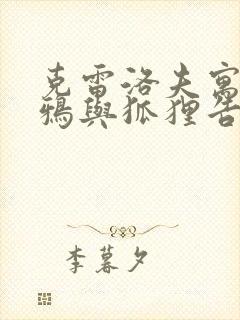 克雷洛夫寓
鴉與狐狸告
李暮夕